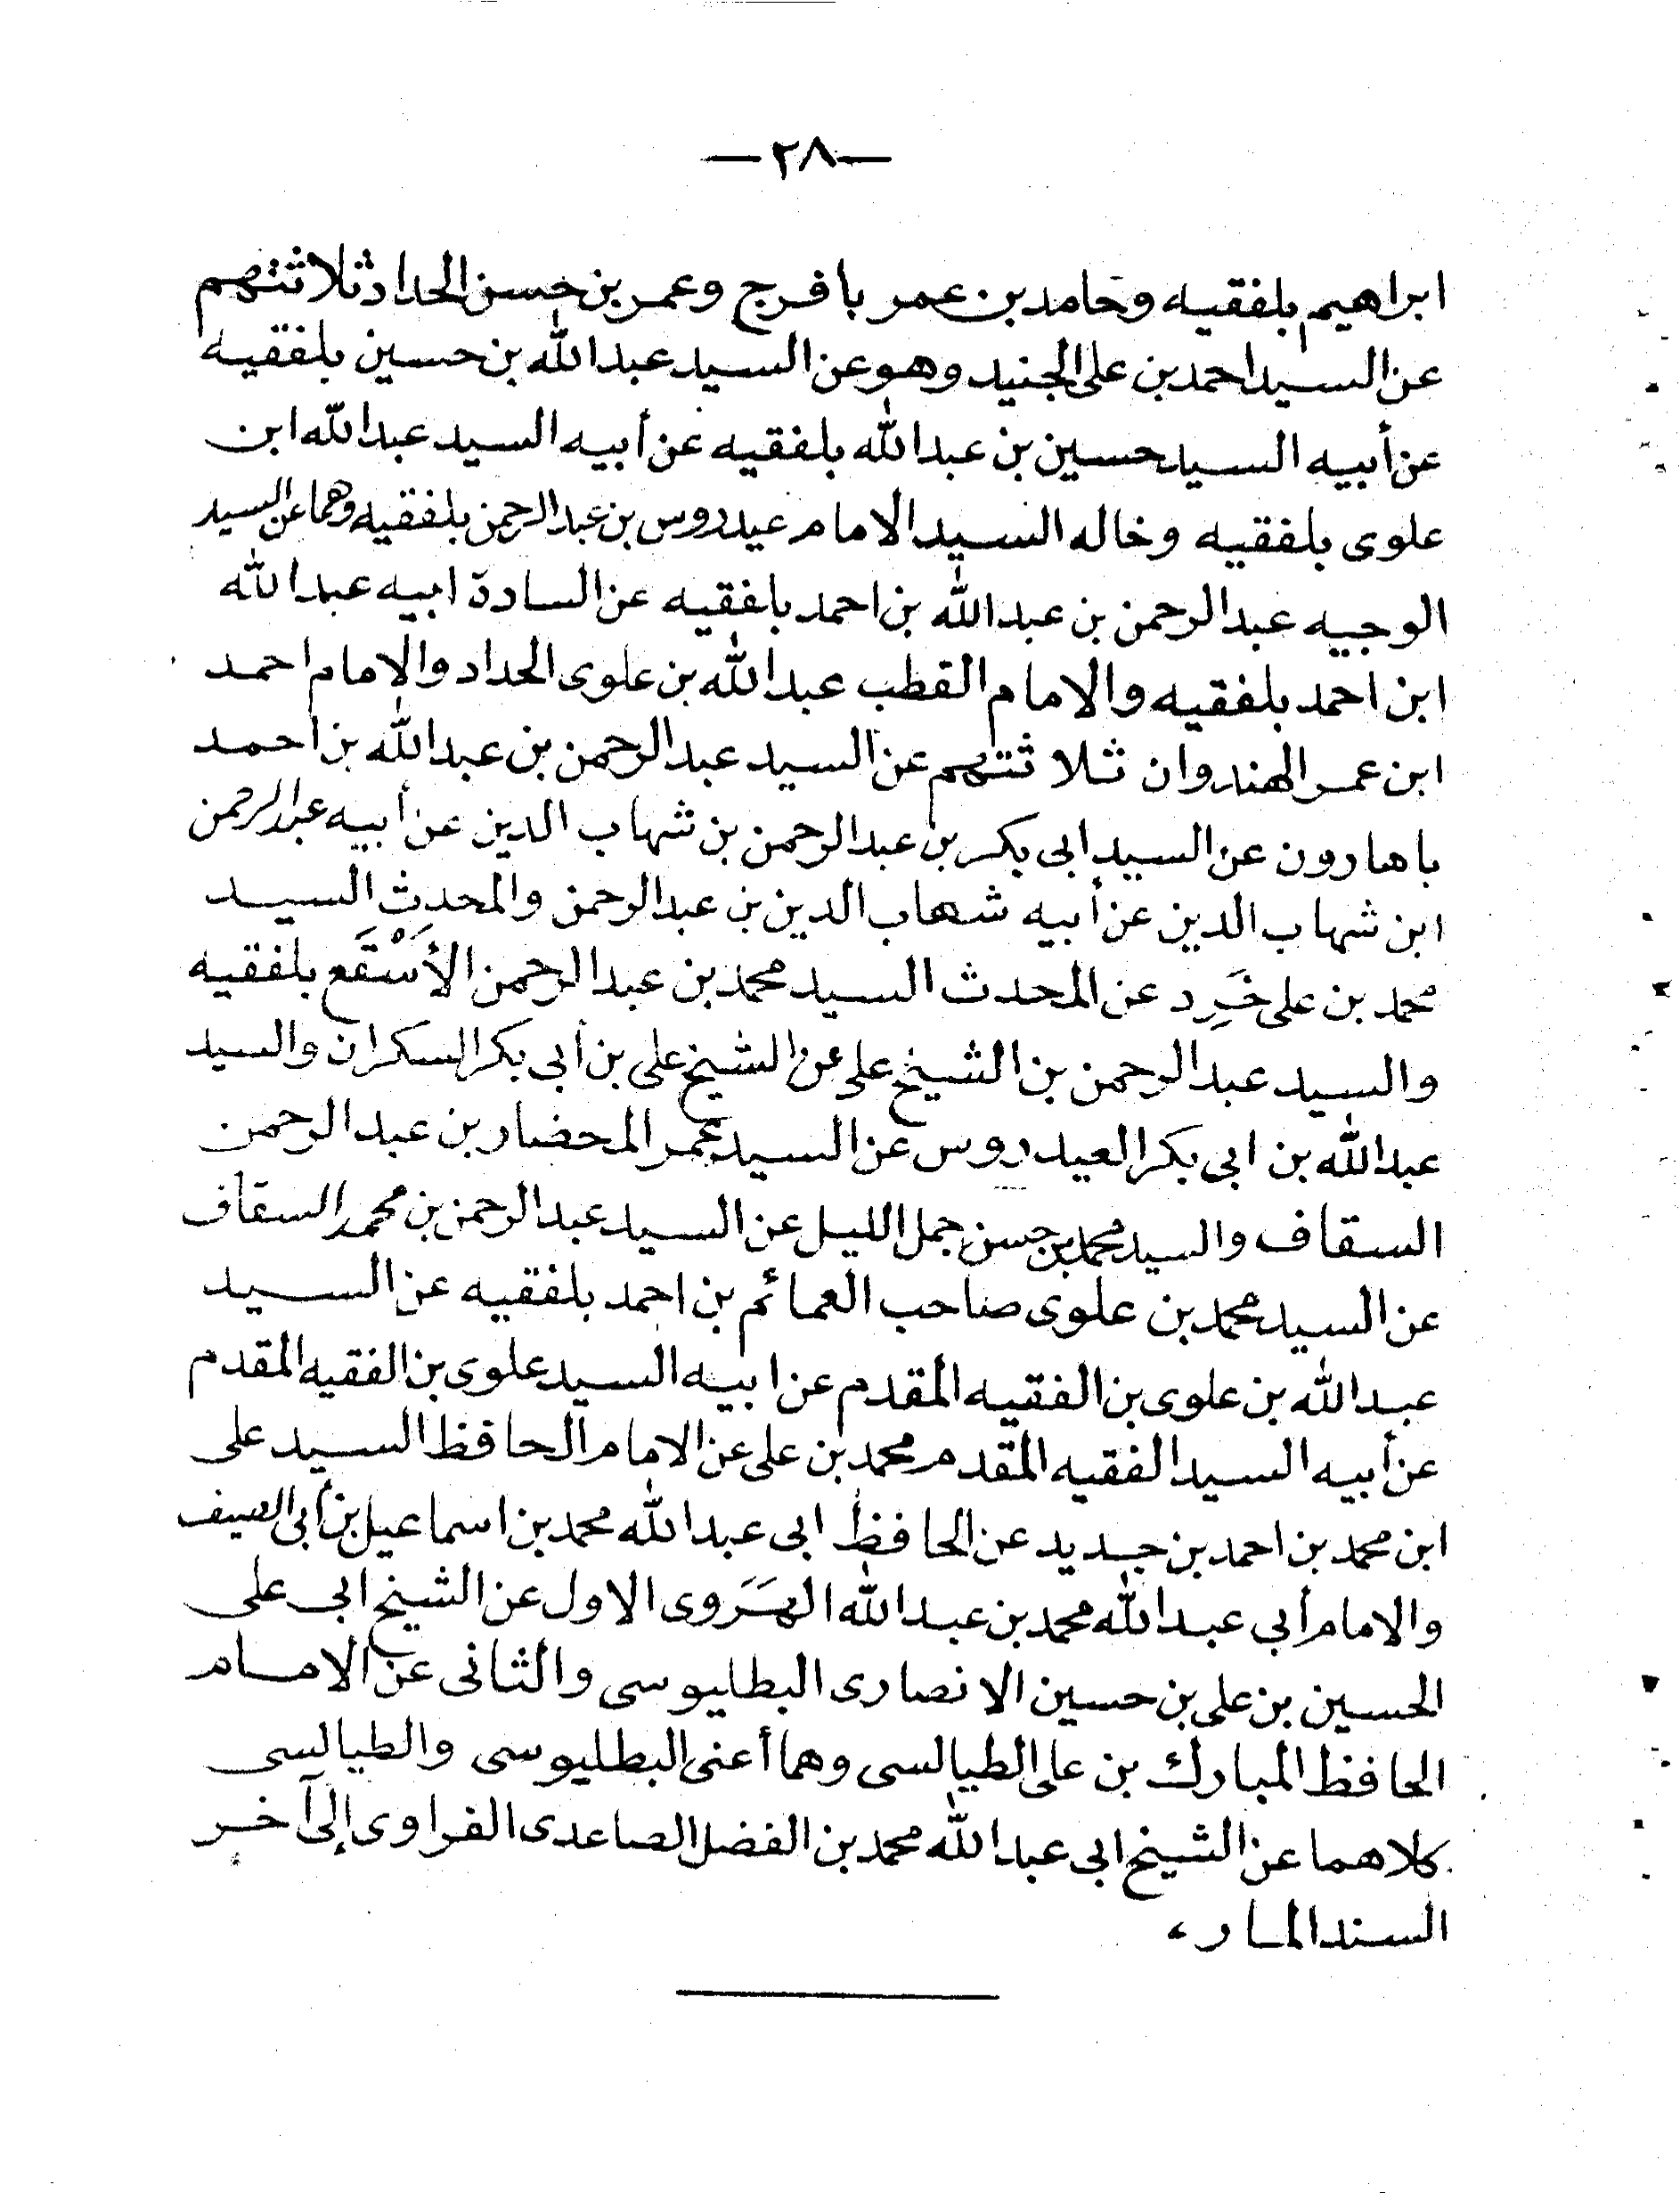 —٢٨—
ابراهيم بلفقيه وحامد بن عمر بافرج وعمر بن حسن الحداد ثلاثتهم
عن السيد احمد بن على الجنيد وهو عن السيد عبد الله بن حسين بلفقيه
عن أبيه السيد حسين بن عبد الله بلفقيه عن أبيه السيد عبد الله ابن
علوى بلفقيه وخاله السيد الامام عيدروس بن عبد الرحمن بلفقيه وهما عن السيد
الوجيه عبد الرحمن بن عبد الله بن احمد بلفقيه عن السادة ابيه عبد الله
ابن احمد بلفقيه والامام القطب عبد الله بن علوى الحداد والامام احمد
ابن عمر الهندوان ثلاثتهم عن السيد عبد الرحمن بن عبد الله بن احمد
باهارون عن السيد ابى بكر بن عبد الرحمن بن شهاب الدين عن أبيه عبد الرحمن
ابن شهاب الدين عن أبيه شهاب الدين بن عبد الرحمن والمحدث السيد
محمد بن على خَرِد عن المحدث السيد محمد بن عبد الرحمن الأَسْقَع بلفقيه
والسيد عبد الرحمن بن الشيخ على عن الشيخ على بن أبى بكر السكران والسيد
عبد الله بن ابى بكر العيدروس عن السيد عمر المحضار بن عبد الرحمن
السقاف والسيد محمد بن حسن جمل الليل عن السيد عبد الرحمن بن محمد السقاف
عن السيد محمد بن علوى صاحب العمائم بن احمد بلفقيه عن السيد
عبد الله بن علوى بن الفقيه المقدم عن ابيه السيد علوى بن الفقيه المقدم
عن أبيه السيد الفقيه المقدم محمد بن على عن الامام الحافظ السيد على
ابن محمد بن احمد بن جديد عن الحافظ ابى عبد الله محمد بن اسماعيل بن أبى الصيف
والامام أبي عبد الله محمد بن عبد الله الهَرَوى الاول عن الشيخ ابى على
الحسين بن على بن حسين الانصارى البطليوسى والثانى عن الامام
الحافظ المبارك بن على الطيالسى وهما أعنى البطليوسى والطيالسى
كلاهما عن الشيخ ابى عبد الله محمد بن الفضل الصاعدى الفراوى إلى آخر
السند المار ،